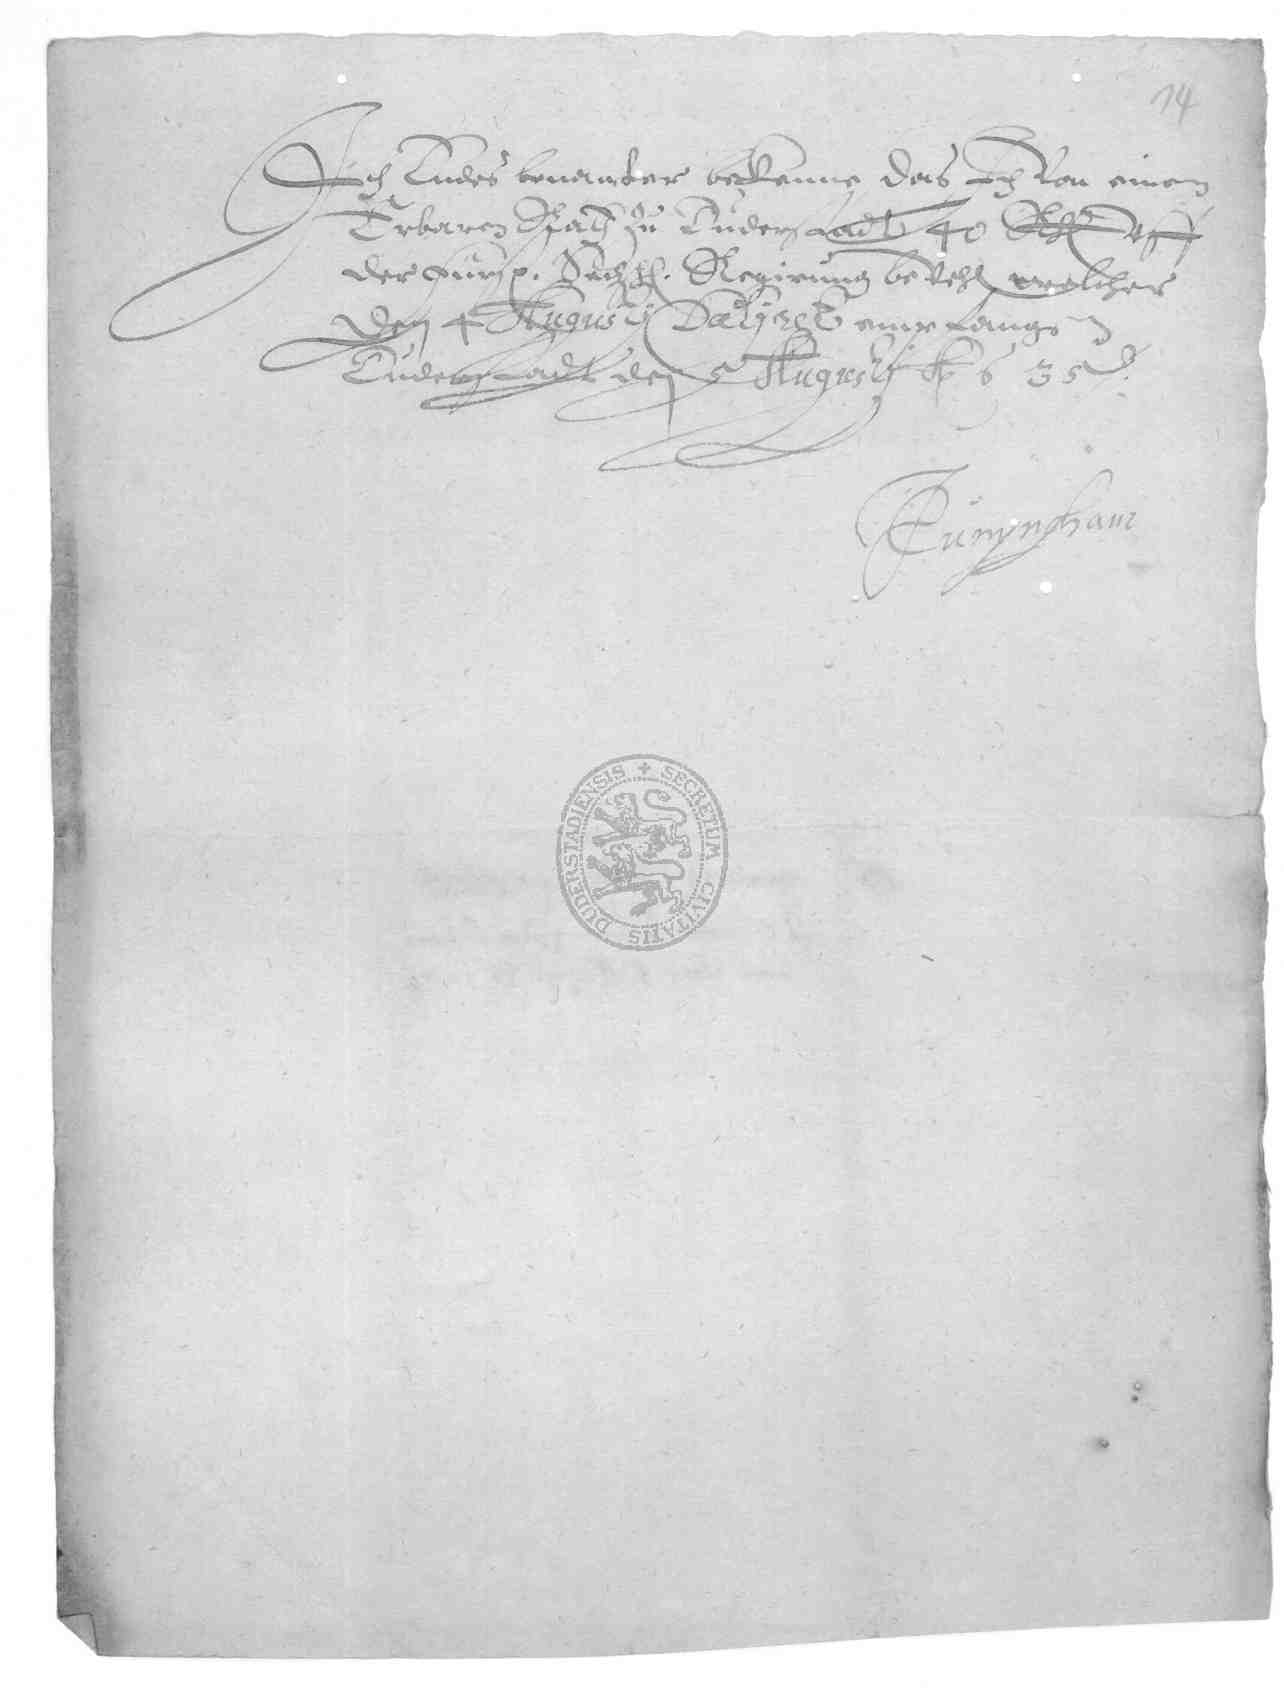 14
Ich Endes benanter bekenne das Ich von einem
Erbaren Rath zu Duderstadt 40 Rth uff
der Furstl. Sächs. Regirung bevehl welcher
den 4 Augustj Datjret empfangen
Duderstadt den 5 Augustj Ao 635
SECRETUM CIVITATIS DUDERSTADIENSIS